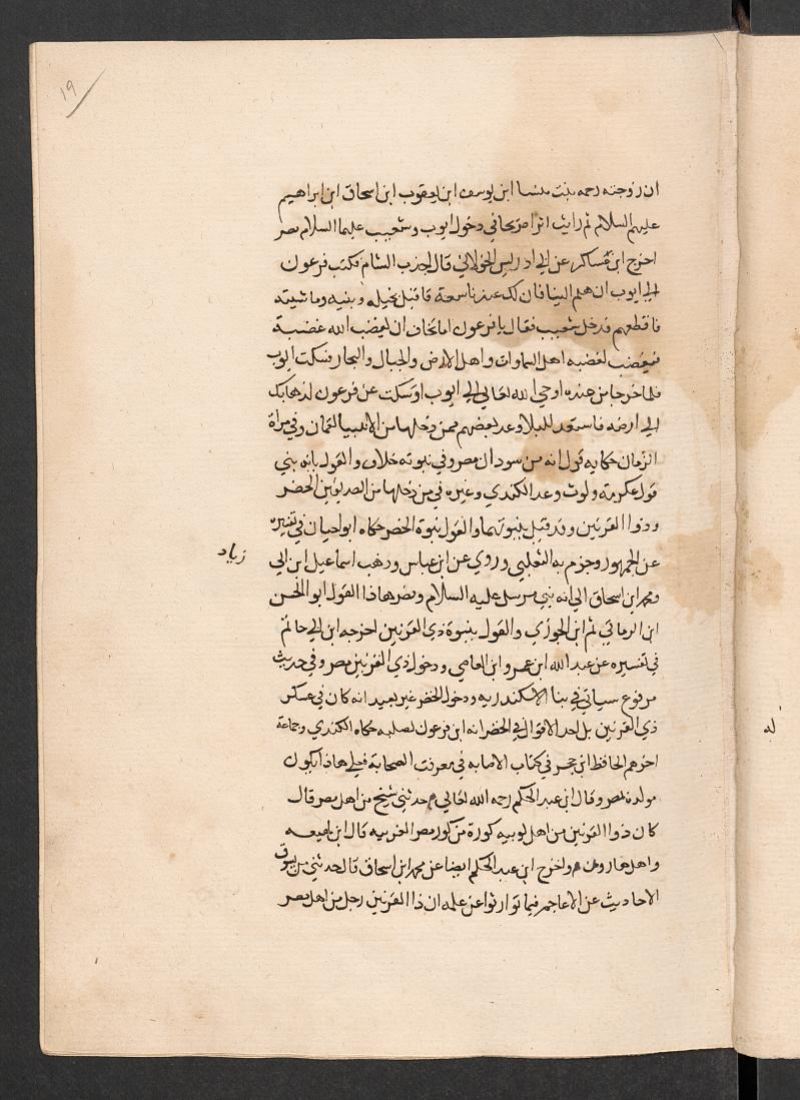 ١٩
ان زوجته رحمه بنت منشا ابن يوسف ابن يعقوب ابن اسحاق ابن ابراهيم
عليهم السلام ثم رايت اثرا صريحا في دخول ايوب وشعيب عليهما السلام مصر
اخرج ابن عساكر عن ابي ادريس الخولاني قال اجذب الشام فكتب فرعون
الي ايوب ان هلم الينا فان لك عندنا سعة فاقبل بخيله وبنيه وماشيته
فاقطعهم فدخل شعيب فقال يا فرعون اما تخاف ان يغضب الله غضبة
فيغضب لغضبه اهل السماوات واهل الارض والجبال والبحار فسكت ايوب
فلما خرجا من عنده اوحي الله تعالي الي ايوب اوسكت عن فرعون لذهابك
الي ارضه فاستعد للبلا وعد بعضهم فيمن دخلها من الانبيا لقمان وفي مراة
الزمان حكاية قول انه من سودان مصر وفي نبوته خلاف والقول بانه نبي
قول عكرمة وليث وعد الكندي وغيره في من دخلها من الصديقين الخضر
وذوا القرنين وقد قيل بنبوتهما والقول بنبوة الخضر حكاه ابو احيان في تفسيره
عن الجمهور وجزم به الثعلبي وروي عن ابن عباس وذهب اسماعيل ابن ابي
زياد
ومحمد ابن اسحاق الي انه نبي مرسل عليه السلام ونصر هاذا القول ابو الحسن
ابن الرماني ثم ابن الجوزي والقول بنبوة ذي القرنين اخرجه ابن ابي حاتم
في تفسيره عن عبد الله ابن عمرو ابن العاصي ودخول ذي القرنين مصر وفي حديث
مرفوع سياتي في بنا الاسكندريه ودخول الخضر غير بعيد انه كان في عسكر
ذي القرنين بل احد الاقوال في الخضر انه ابن فرعون لصلبه حكاه الكندي وجماعة
اخرهم الحافظ ابن حجر في كتاب الاصابه في معرفت الصحابة فعلي هاذا يكون
مولده بمصر وقال ابن عبد الحكم رحمه الله تعالي حدثني شيخ من اهل مصر قال
كان ذوا القرنين من اهل لوبيه كورة من كور مصر الغربيه قال ابن لهيعه
واهلها روم واخرج ابن عبد الحكم ايضا عن محمد ابن اسحاق قال حدثني من يسوق
الاحاديث عن الاعاجم فيما توارثوا عن علمه ان ذا القرنين رجل من اهل مصر